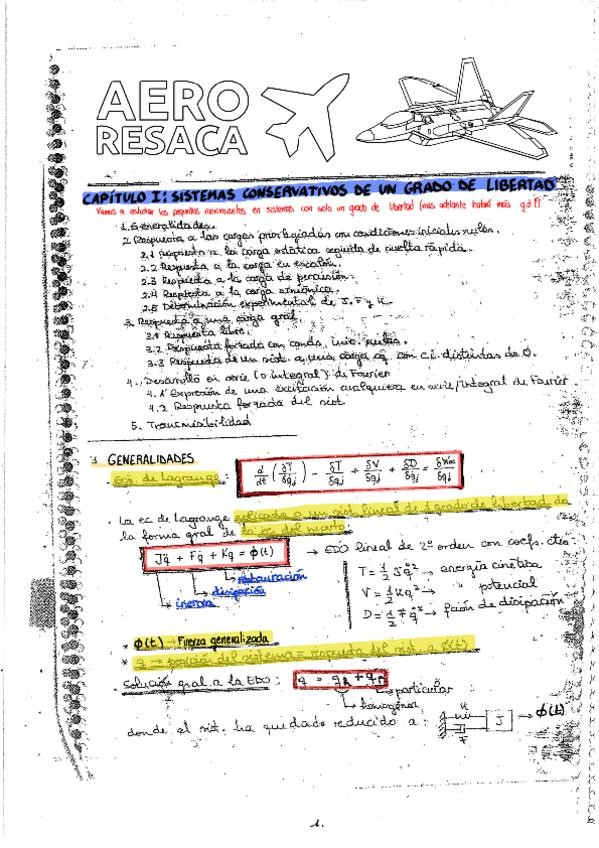 AERO
RESACA
CAPÍTULO I: SISTEMAS CONSERVATIVOS DE UN GRADO DE LIBERTAD
Vamos a estudiar los pequeños movimientos en sistemas con solo un grado de libertad (más adelante habrá más gdl)
1. Generalidades.
2. Respuesta a las cargas privilegiadas con condiciones iniciales nulas.
2.1 Respuesta a la carga estática seguida de suelta rápida.
2.2 Respuesta a la carga en escalón.
2.3 Respuesta a la carga de percusión.
2.4 Respuesta a la carga armónica.
2.5 Determinación experimental de J, F y K
3. Respuesta a una carga gral
3.1 Respuesta libre.
3.2 Respuesta forzada con conds. inic. nulas.
3.3 Respuesta de un sist. a una carga con c.i. distintas de 0.
4. Desarrollo en serie (o integral) de Fourier
4.1 Expresión de una excitación cualquiera en serie/integral de Fourier
4.2 Respuesta forzada del sist
5. Transmisibilidad
1 GENERALIDADES
- Ecs. de Lagrange: d/dt (δT/δq̇j) - δT/δqj + δV/δqj + δD/δq̇j = δWnc/δqj
La ec de Lagrange aplicada a un sist. lineal de 1 grado de libertad da
la forma gral de la ec. del mvto.
Jq̈ + Fq̇ + Kq = ϕ(t) → EDO lineal de 2º orden con coefs. ctes
restauración
disipación
inercia
T = 1/2 Jq̇² → energía cinética
V = 1/2 Kq² → " potencial
D = 1/2 Fq̇² → fción de disipación
* ϕ(t) → Fuerza generalizada
* q → posición del sistema = respuesta del sist. a ϕ(t)
Solución gral a la EDO: q = qh + qp
particular
homogénea
donde el sist. ha quedado reducido a:
K
F
J
→ ϕ(t)
1.